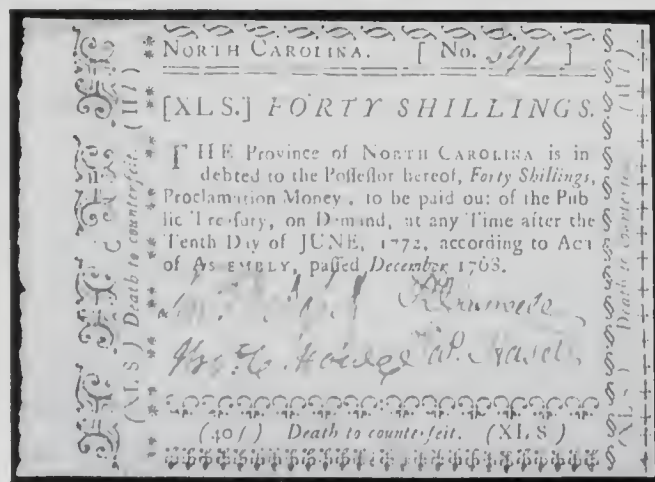 NORTH CAROLINA. [ No. 591 ]
[XL S.] FORTY SHILLINGS.
THE Province of NORTH CAROLINA is in
debted to the Poſſeſſor hereof, Forty Shillings,
Proclamation Money, to be paid out of the Pub
lic Treaſury, on Demand, at any Time after the
Tenth Day of JUNE, 1772, according to Act
of ASSEMBLY, paſſed December, 1768.
(40/) Death to counterfeit. (XL S)
(XL S) Death to counterfeit.
(XL S) Death to counterfeit